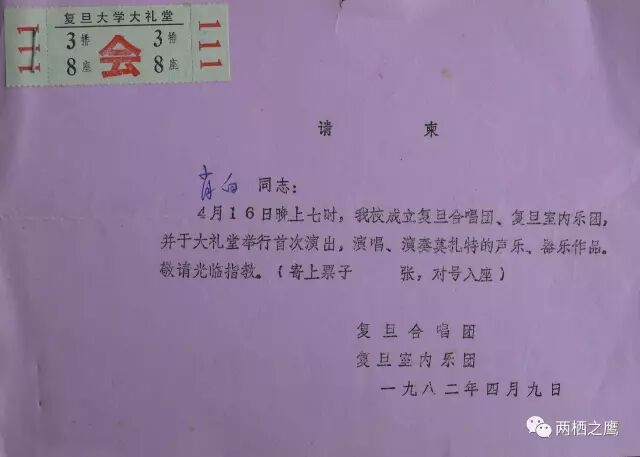 复旦大学大礼堂
111 3排 8座 会 3排 8座 111
请柬
肖白 同志:
4月16日晚上七时,我校成立复旦合唱团、复旦室内乐团,
并于大礼堂举行首次演出,演唱、演奏莫扎特的声乐、器乐作品。
敬请光临指教。(寄上票子 张,对号入座)
复旦合唱团
复旦室内乐团
一九八二年四月九日
两栖之鹰